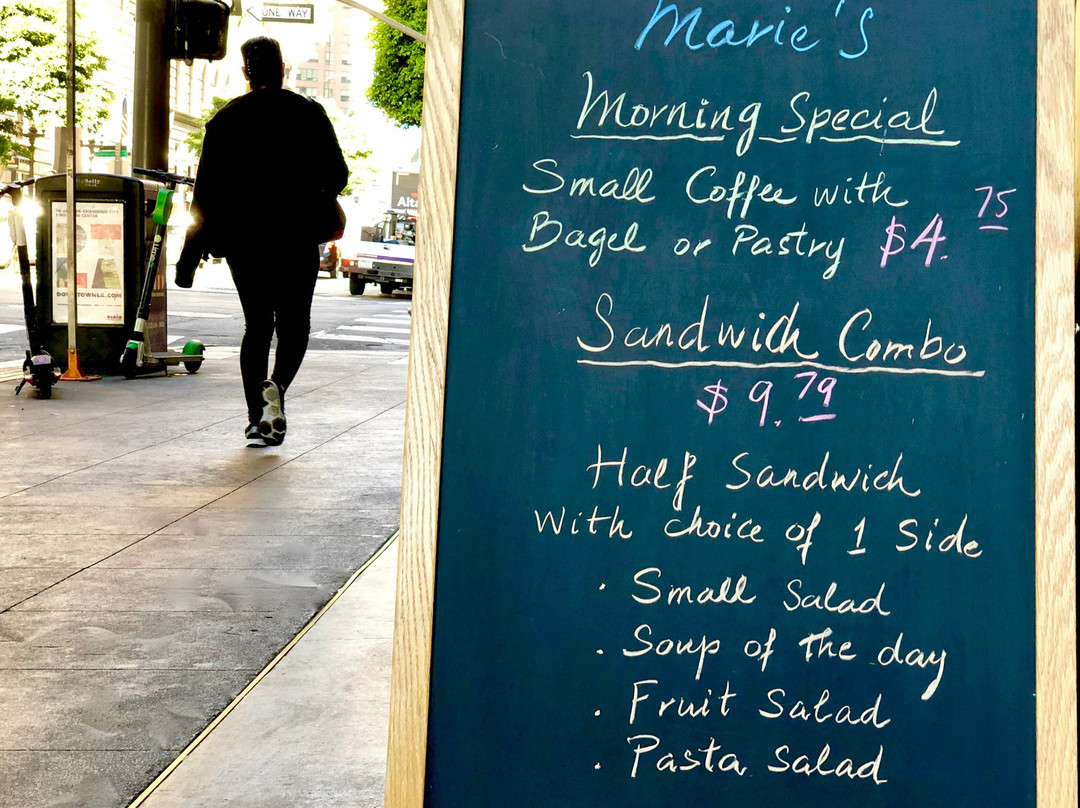 ONE WAY
Marie's
Morning Special
Small Coffee with
Bagel or Pastry $4.75
Sandwich Combo
$9.79
Half Sandwich
With choice of 1 Side
· Small Salad
. Soup of the day
. Fruit Salad
. Pasta Salad
BigBelly
Alta
DOWNTOWNLA.COM